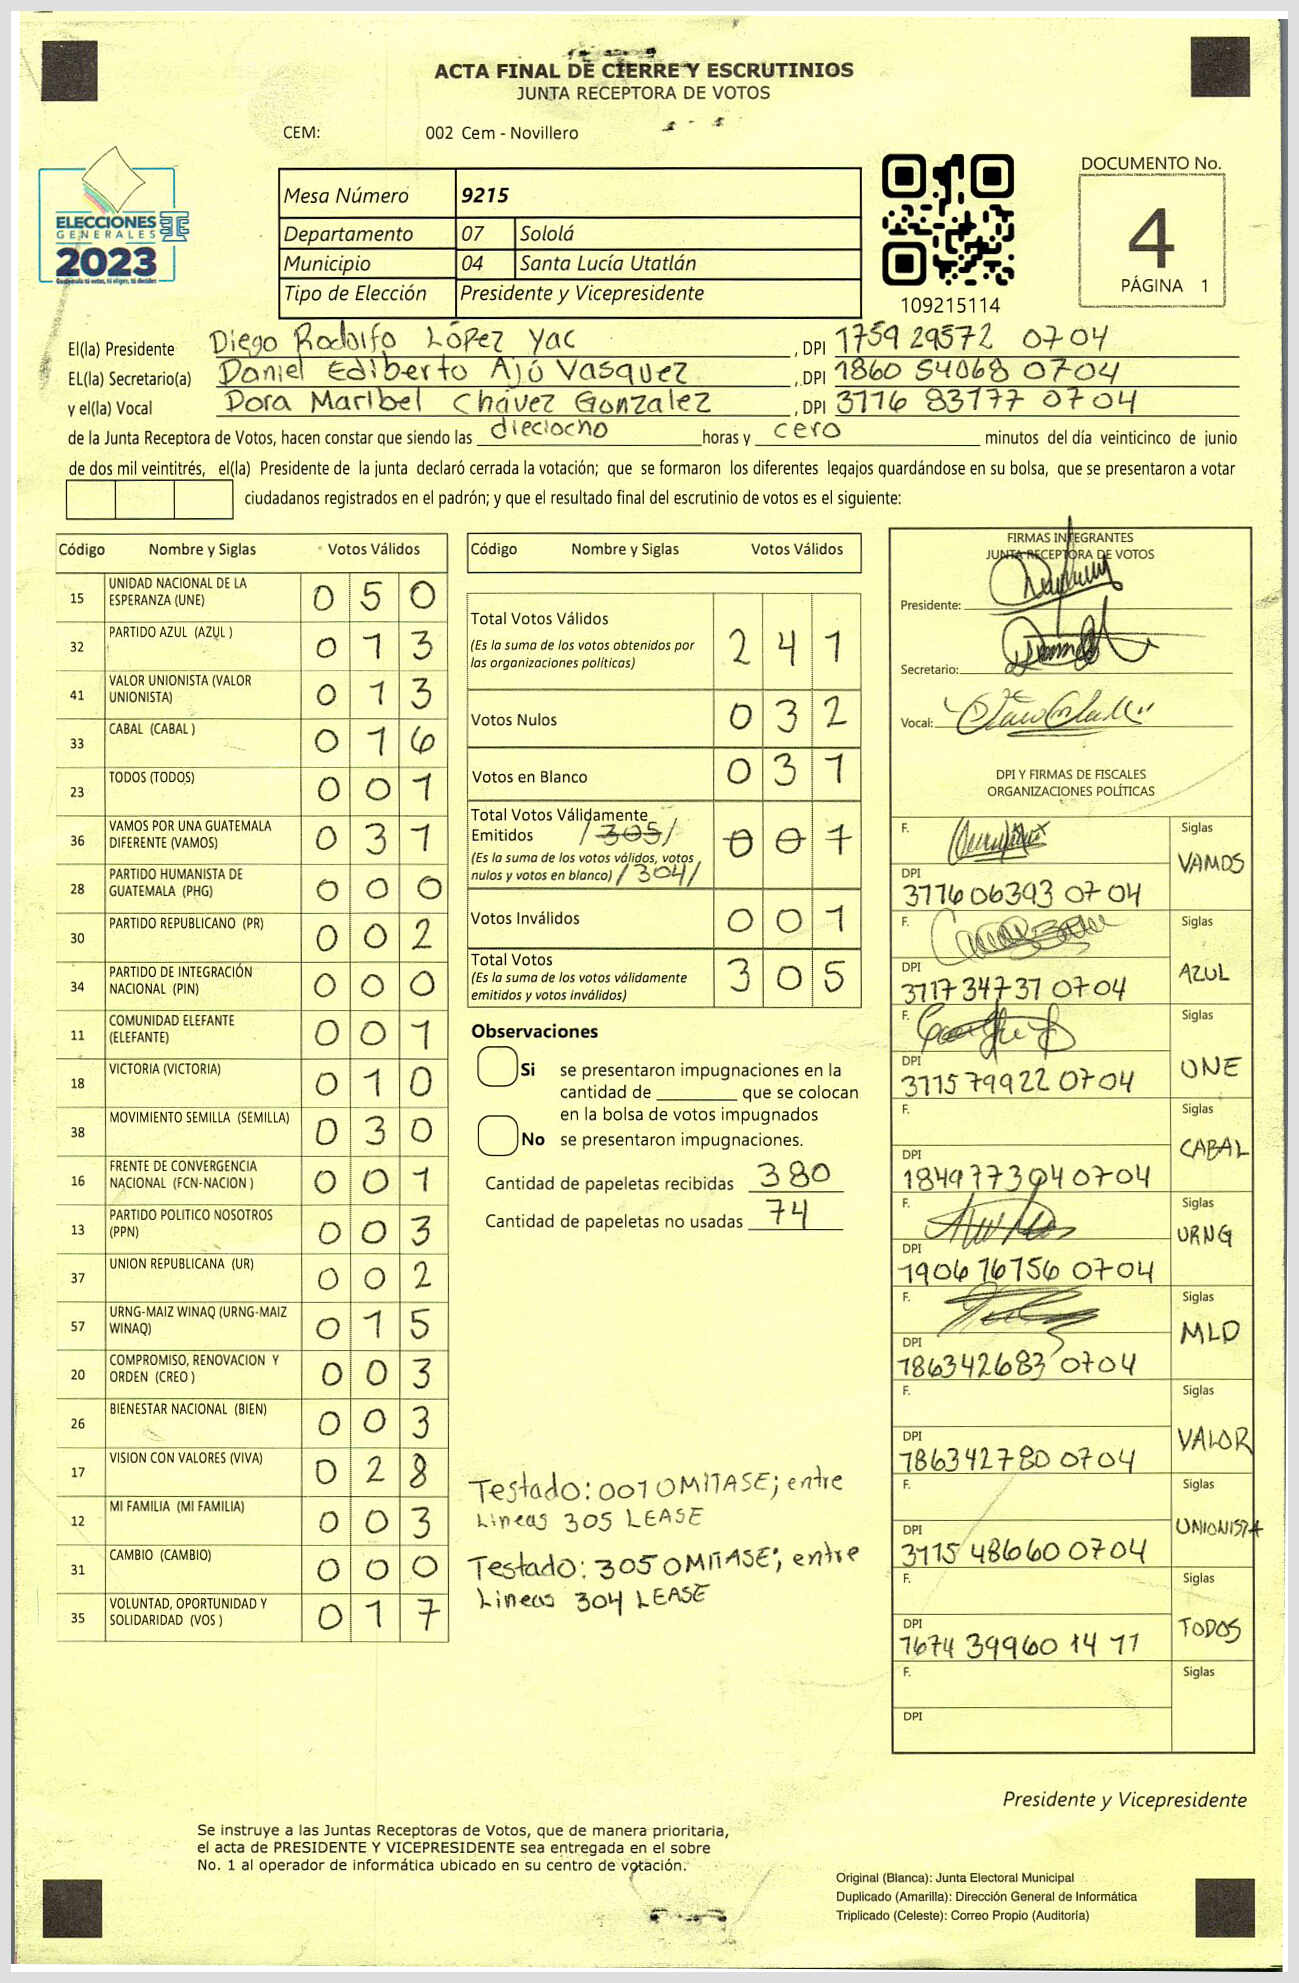 ACTA FINAL DE CIERRE Y ESCRUTINIOS
JUNTA RECEPTORA DE VOTOS
CEM: 002 Cem - Novillero
ELECCIONES
GENERALES
2023
Guatemala tú votas, tú eliges, tú decides
Mesa Número 9215
Departamento 07 Sololá
Municipio 04 Santa Lucía Utatlán
Tipo de Elección Presidente y Vicepresidente
109215114
DOCUMENTO No.
4
PÁGINA 1
El(la) Presidente Diego Rodolfo López Yac , DPI 1759 29572 0704
EL(la) Secretario(a) Daniel Ediberto Ajú Vasquez , DPI 1860 54068 0704
y el(la) Vocal Dora Maribel Chávez Gonzalez , DPI 3116 83177 0704
de la Junta Receptora de Votos, hacen constar que siendo las dieciocho horas y cero minutos del día veinticinco de junio
de dos mil veintitrés, el(la) Presidente de la junta declaró cerrada la votación; que se formaron los diferentes legajos guardándose en su bolsa, que se presentaron a votar
ciudadanos registrados en el padrón; y que el resultado final del escrutinio de votos es el siguiente:
Código Nombre y Siglas Votos Válidos
15 UNIDAD NACIONAL DE LA ESPERANZA (UNE) 0 5 0
32 PARTIDO AZUL (AZUL ) 0 1 3
41 VALOR UNIONISTA (VALOR UNIONISTA) 0 1 3
33 CABAL (CABAL ) 0 1 6
23 TODOS (TODOS) 0 0 1
36 VAMOS POR UNA GUATEMALA DIFERENTE (VAMOS) 0 3 1
28 PARTIDO HUMANISTA DE GUATEMALA (PHG) 0 0 0
30 PARTIDO REPUBLICANO (PR) 0 0 2
34 PARTIDO DE INTEGRACIÓN NACIONAL (PIN) 0 0 0
11 COMUNIDAD ELEFANTE (ELEFANTE) 0 0 1
18 VICTORIA (VICTORIA) 0 1 0
38 MOVIMIENTO SEMILLA (SEMILLA) 0 3 0
16 FRENTE DE CONVERGENCIA NACIONAL (FCN-NACION ) 0 0 1
13 PARTIDO POLITICO NOSOTROS (PPN) 0 0 3
37 UNION REPUBLICANA (UR) 0 0 2
57 URNG-MAIZ WINAQ (URNG-MAIZ WINAQ) 0 1 5
20 COMPROMISO, RENOVACION Y ORDEN (CREO ) 0 0 3
26 BIENESTAR NACIONAL (BIEN) 0 0 3
17 VISION CON VALORES (VIVA) 0 2 8
12 MI FAMILIA (MI FAMILIA) 0 0 3
31 CAMBIO (CAMBIO) 0 0 0
35 VOLUNTAD, OPORTUNIDAD Y SOLIDARIDAD (VOS ) 0 1 7
Código Nombre y Siglas Votos Válidos
Total Votos Válidos 2 4 1
(Es la suma de los votos obtenidos por
las organizaciones políticas)
Votos Nulos 0 3 2
Votos en Blanco 0 3 1
Total Votos Válidamente
Emitidos /305/ 0 0 1
(Es la suma de los votos válidos, votos
nulos y votos en blanco) /304/
Votos Inválidos 0 0 1
Total Votos 3 0 5
(Es la suma de los votos válidamente
emitidos y votos inválidos)
Observaciones
Si se presentaron impugnaciones en la
cantidad de ________ que se colocan
en la bolsa de votos impugnados
No se presentaron impugnaciones.
Cantidad de papeletas recibidas 380
Cantidad de papeletas no usadas 74
Testado: 001 OMITASE; entre
Lineas 305 LEASE
Testado: 305 OMITASE; entre
Lineas 304 LEASE
FIRMAS INTEGRANTES
JUNTA RECEPTORA DE VOTOS
Presidente:
Secretario:
Vocal:
DPI Y FIRMAS DE FISCALES
ORGANIZACIONES POLÍTICAS
F. Siglas VAMOS
DPI 3116 06393 0704
F. Siglas AZUL
DPI 3117 34737 0704
F. Siglas UNE
DPI 3115 79922 0704
F. Siglas CABAL
DPI 1849773040704
F. Siglas URNG
DPI 1906 76756 0704
F. Siglas MLD
DPI 186342683 0704
F. Siglas VALOR
DPI 186342780 0704
F. Siglas UNIONISTA
DPI 3115 48660 0704
F. Siglas TODOS
DPI 1674 39960 14 11
F. Siglas
DPI
Presidente y Vicepresidente
Se instruye a las Juntas Receptoras de Votos, que de manera prioritaria,
el acta de PRESIDENTE Y VICEPRESIDENTE sea entregada en el sobre
No. 1 al operador de informática ubicado en su centro de votación.
Original (Blanca): Junta Electoral Municipal
Duplicado (Amarilla): Dirección General de Informática
Triplicado (Celeste): Correo Propio (Auditoría)